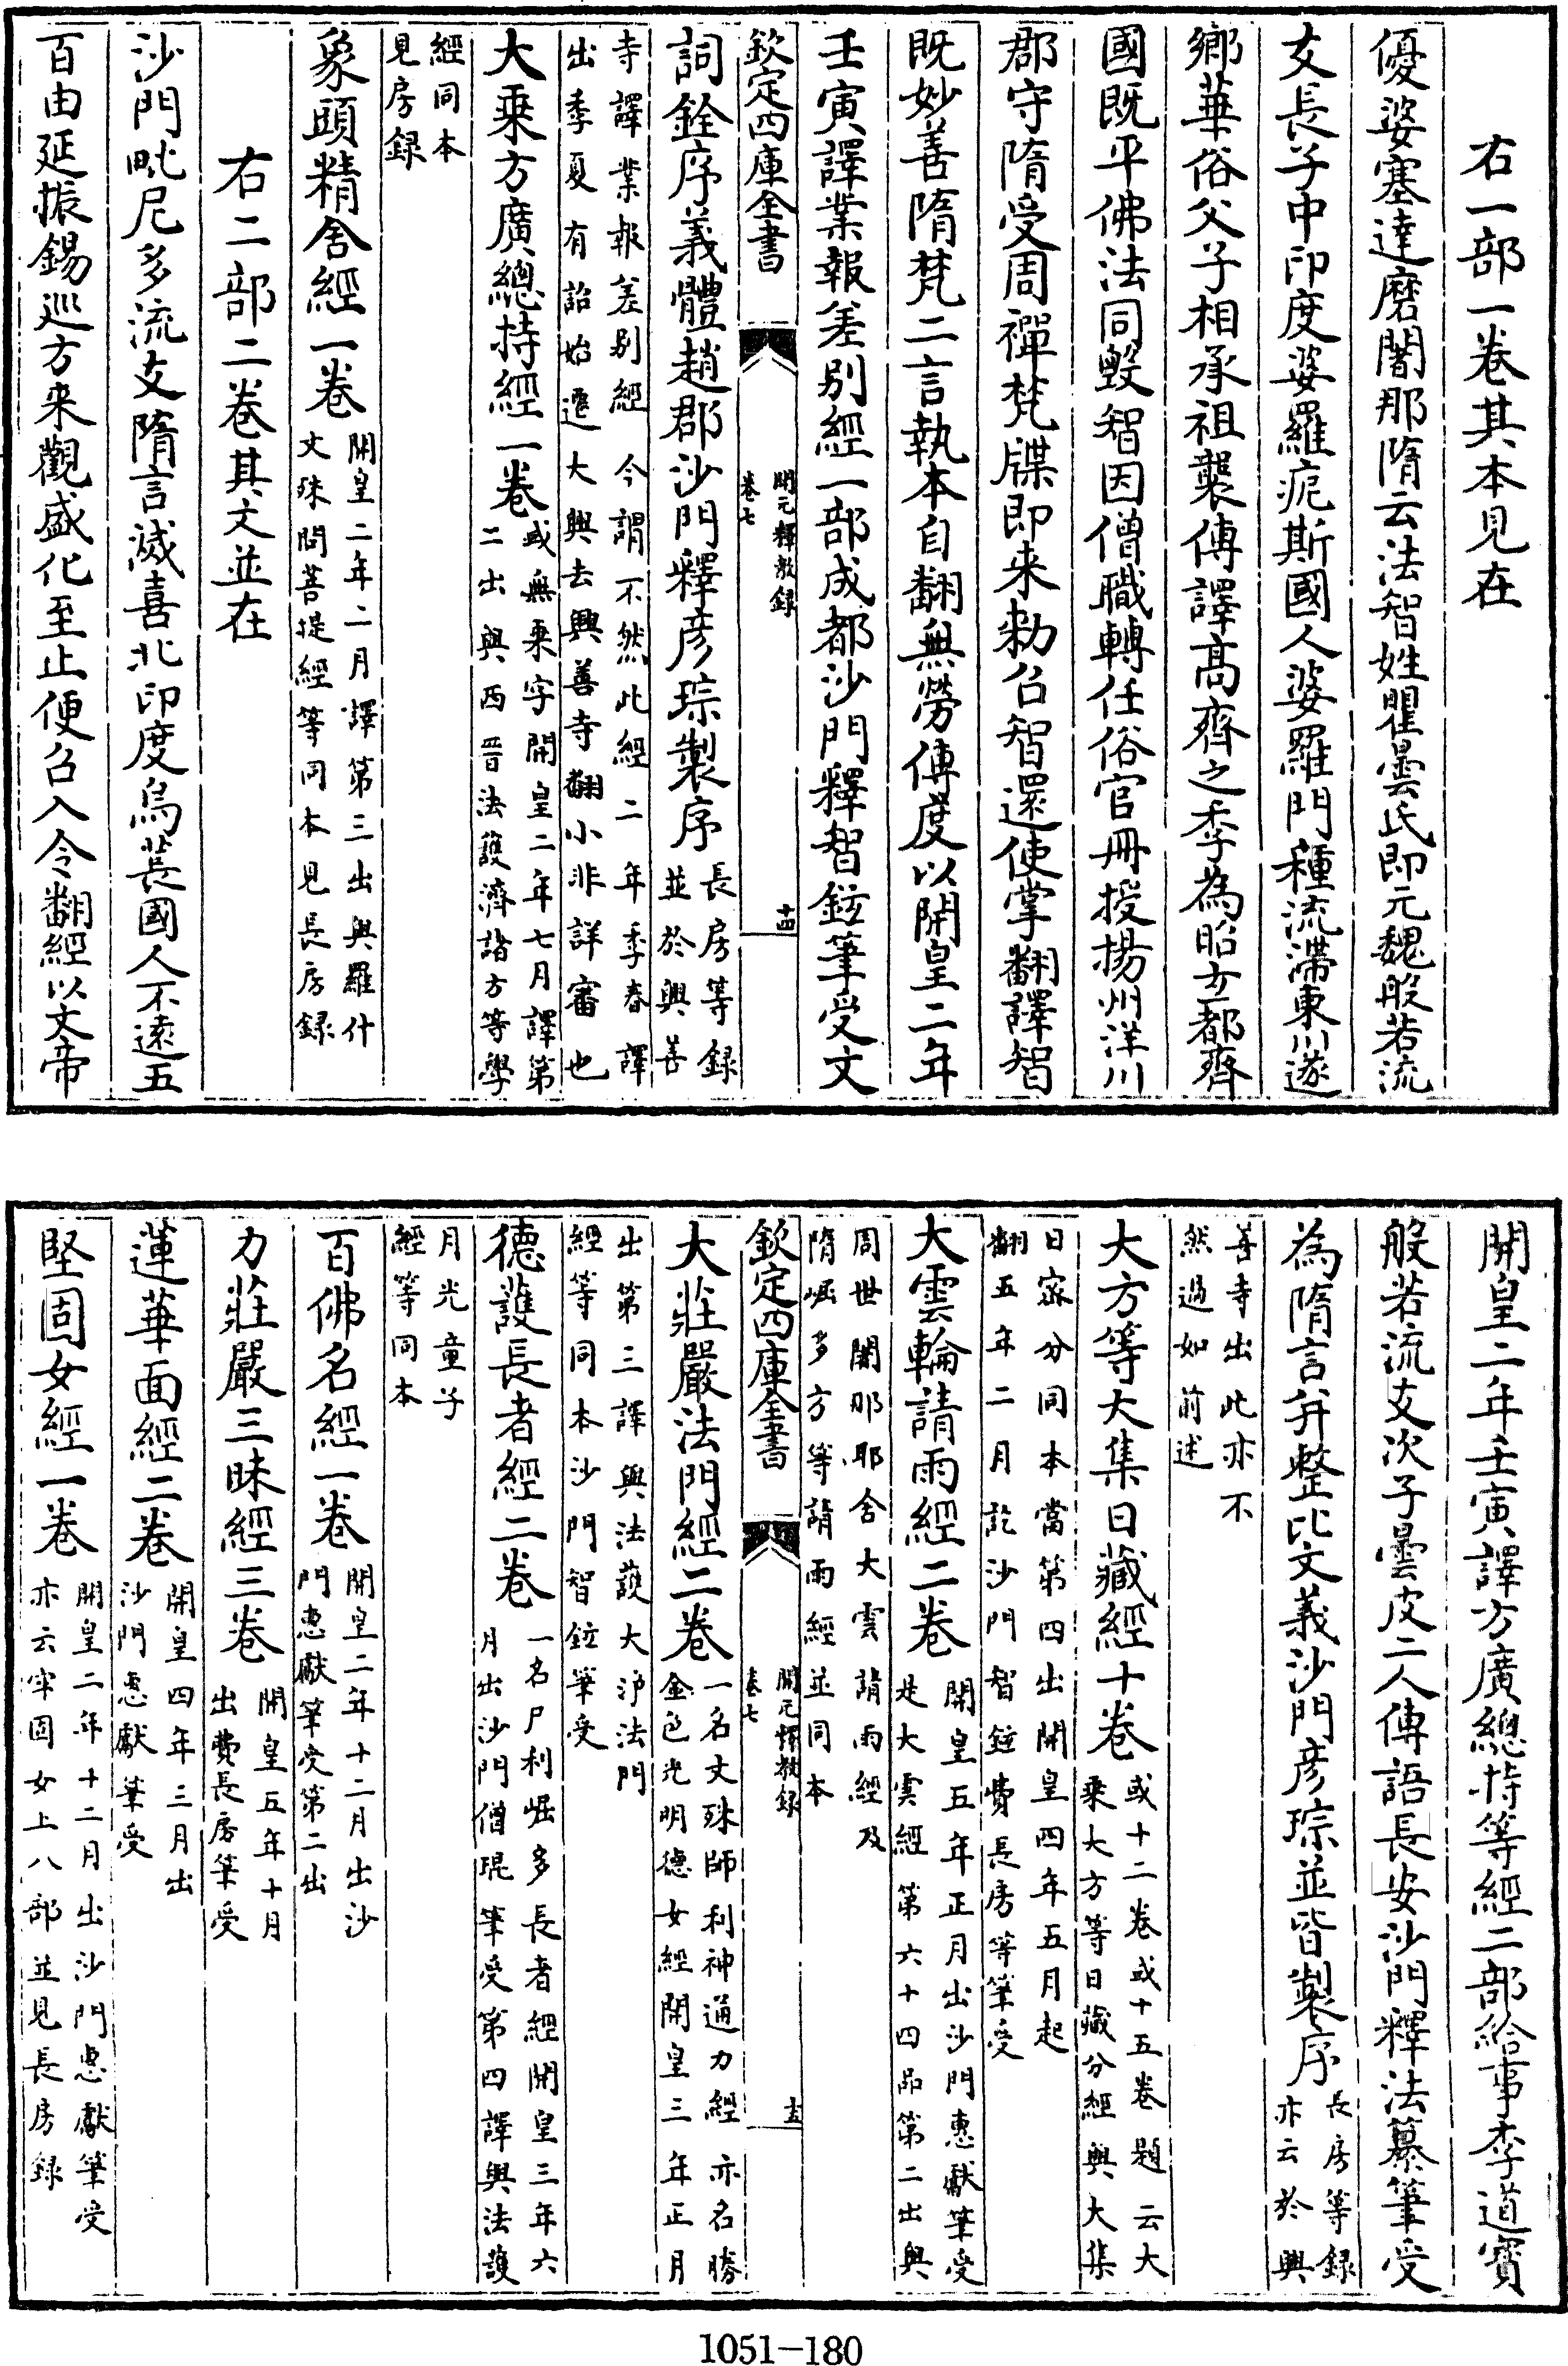 右一部一卷其本見在
優婆塞達磨闍那隋云法智姓瞿曇氏即元魏般若流
支長子中印度婆羅痆斯國人婆羅門種流滯東川遂
鄉華俗父子相承祖襲傳譯高齊之季為昭玄都齊
國既平佛法同毀智因僧職轉任俗官冊授揚州洋川
郡守隋受周禪梵牒即来勅召智還使掌翻譯智
既妙善隋梵二言執本自翻無勞傳度以開皇二年
壬寅譯業報差別經一部成都沙門釋智鉉筆受文
欽定四庫全書
開元釋教録
卷七
十四
詞銓序義體趙郡沙門釋彦琮製序長房等録
並於興善
寺譯業報差別經今謂不然此經二年季春譯
出季夏有詔始遷大興去興善寺翻小非詳審也
大乗方廣總持經一卷或無乗字開皇二年七月譯第
二出與西晉法護濟諸方等學
經同本
見房録
象頭精舍經一卷開皇二年二月譯第三出與羅什
文殊問菩提經等同本見長房録
右二部二卷其文並在
沙門毗尼多流支隋言滅喜北印度烏萇國人不遠五
百由延振錫巡方来觀盛化至止便召入令翻經以文帝
開皇二年壬寅譯方廣總持等經二部給事李道寶
般若流支次子曇皮二人傳語長安沙門釋法纂筆受
為隋言并整比文義沙門彦琮並皆製序長房等録
亦云於興
善寺出此亦不
然過如前述
大方等大集日藏經十卷或十二卷或十五卷題云大
乗大方等日藏分經與大集
日宻分同本當第四出開皇四年五月起
翻五年二月訖沙門智鉉費長房等筆受
大雲輪請雨經二卷開皇五年正月出沙門惠獻筆受
是大雲經第六十四品第二出與
周世闍那耶舍大雲請雨經及
隋崛多方等請雨經並同本
欽定四庫全書
開元釋教録
卷七
十五
大莊嚴法門經二卷一名文殊師利神通力經亦名勝
金色光明德女經開皇三年正月
出第三譯與法護大浄法門
經等同本沙門智鉉筆受
德護長者經二卷一名尸利崛多長者經開皇三年六
月出沙門僧琨筆受第四譯與法護
月光童子
經等同本
百佛名經一卷開皇二年十二月出沙
門惠獻筆受第二出
力莊嚴三昧經三卷開皇五年十月
出費長房筆受
蓮華面經二卷開皇四年三月出
沙門惠獻筆受
堅固女經一卷開皇二年十二月出沙門惠獻筆受
亦云牢固女上八部並見長房録
1051-180